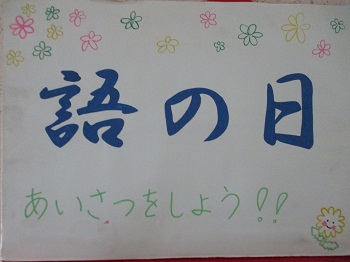 語の日
あいさつをしよう!!